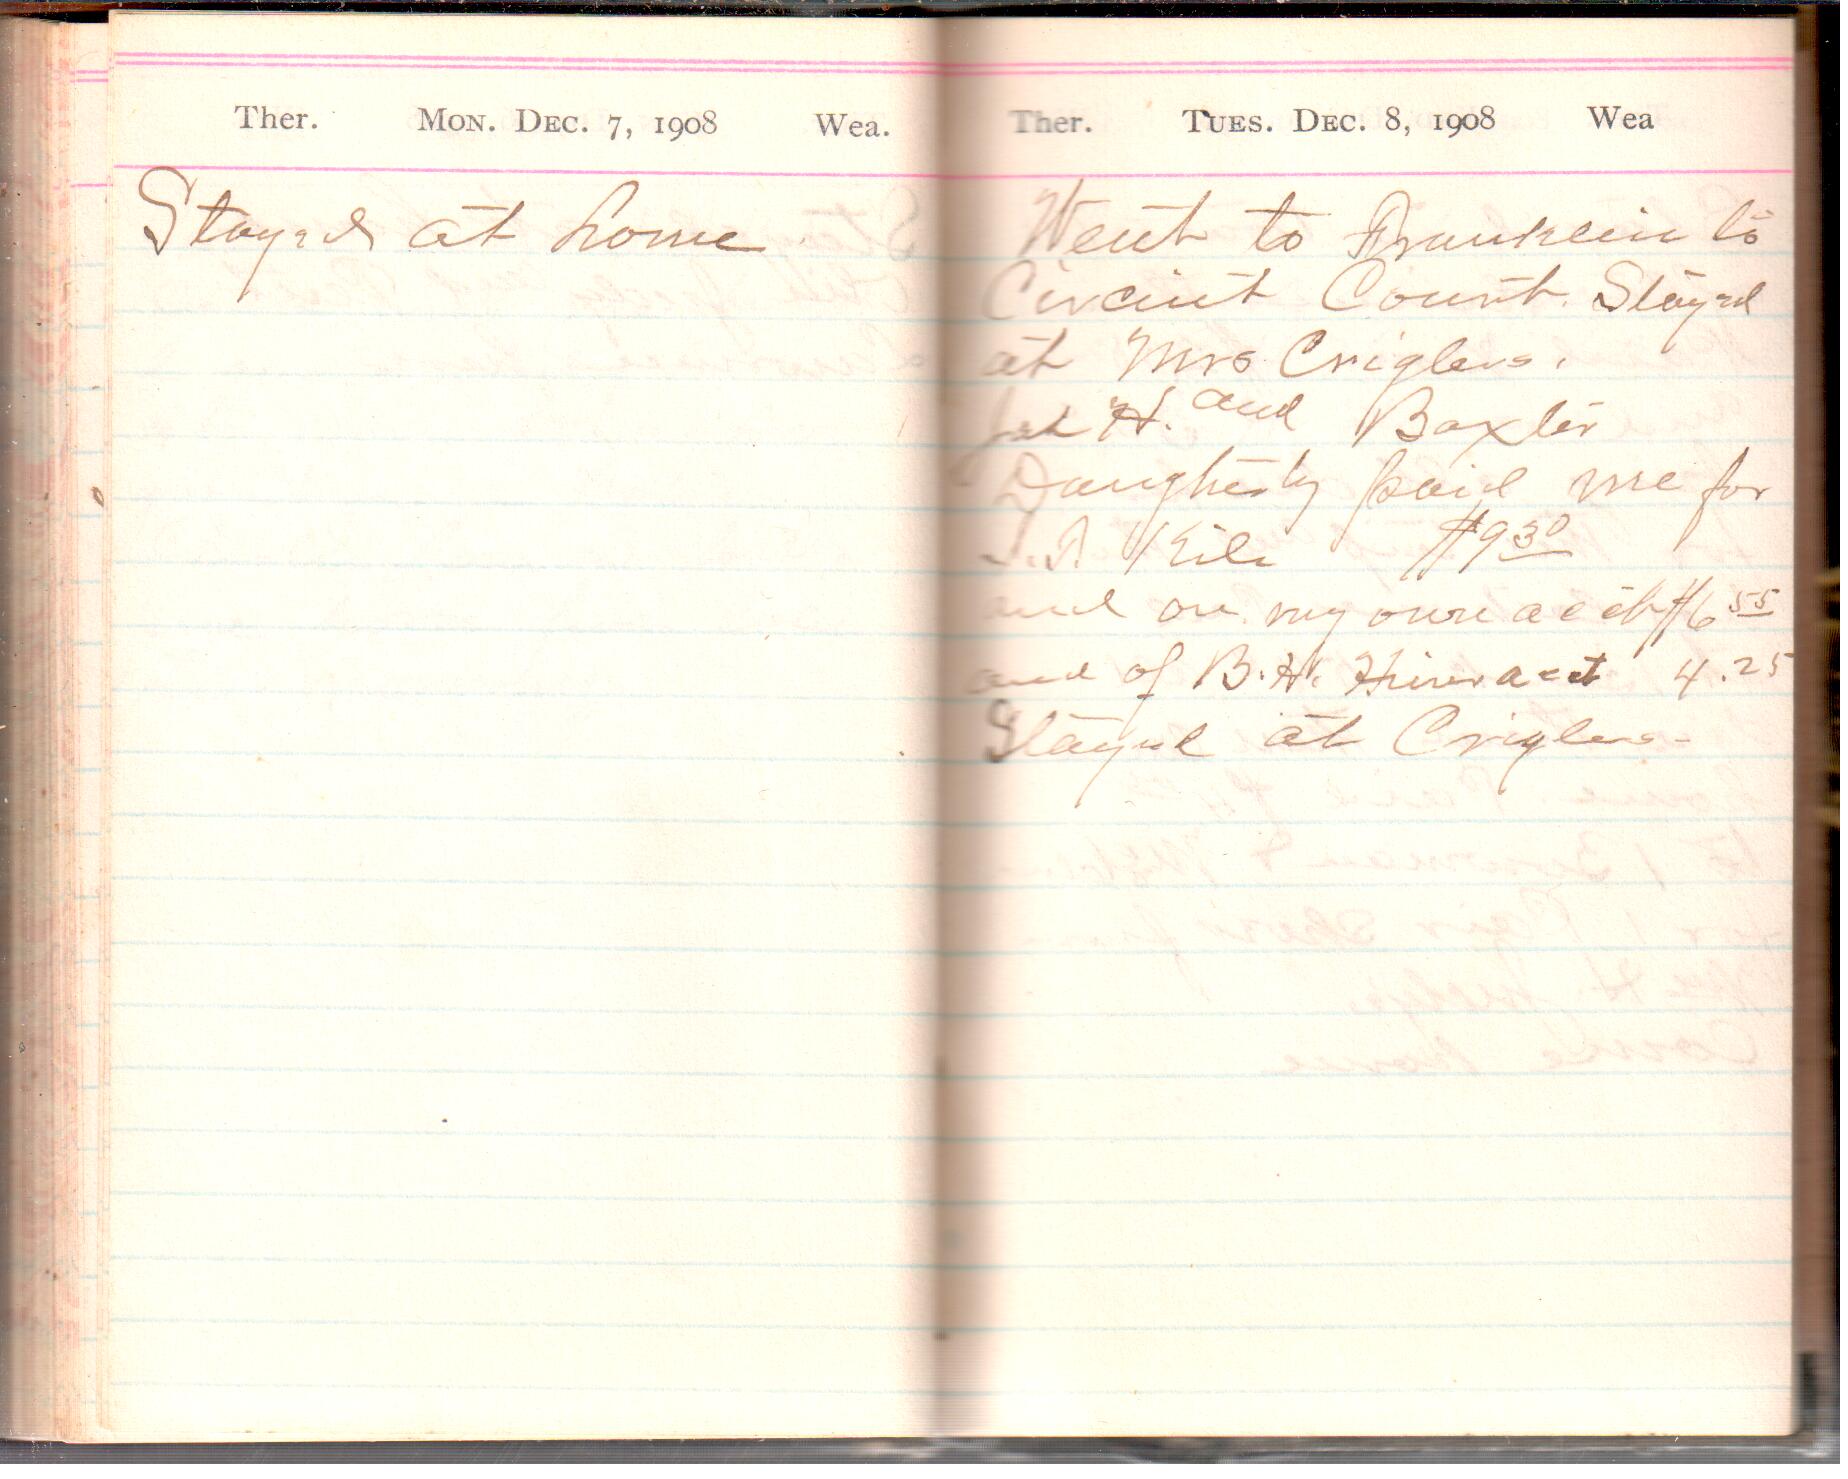 Ther. Mon. Dec. 7, 1908 Wea.
Stayed at home
Ther. Tues. Dec. 8, 1908 Wea
Went to Franklin to
Circuit Court. Stayed
at Mrs Criglers.
H. and Baxter
Daugherty paid me for
$9 30
and on my own acct $6 55
and of B. H. Hiner acct 4.25
Stayed at Criglers-